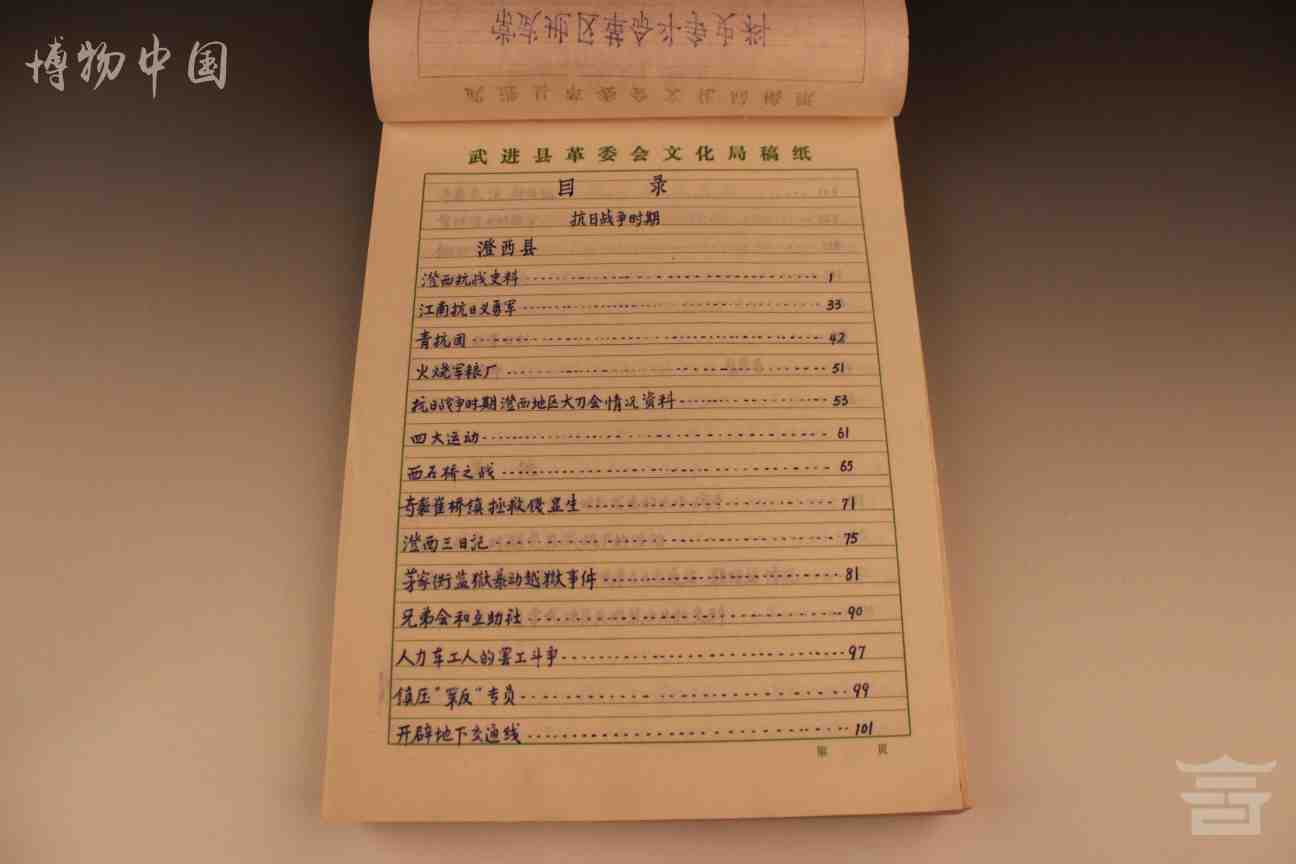 博物中国
武进县革委会文化局稿纸
目 录
抗日战争时期
澄西县
澄西抗战史料 1
江南抗日义勇军 33
青抗团 42
火烧军粮厂 51
抗日战争时期澄西地区大刀会情况资料 53
四大运动 61
西石桥之战 65
奇袭崔桥镇拯救 生 71
澄西三日記 75
茅家街监狱暴动越狱事件 81
兄弟会和互助社 90
人力车工人的罢工斗争 97
镇压"军反"专员 99
开辟地下交通线 101
第 页